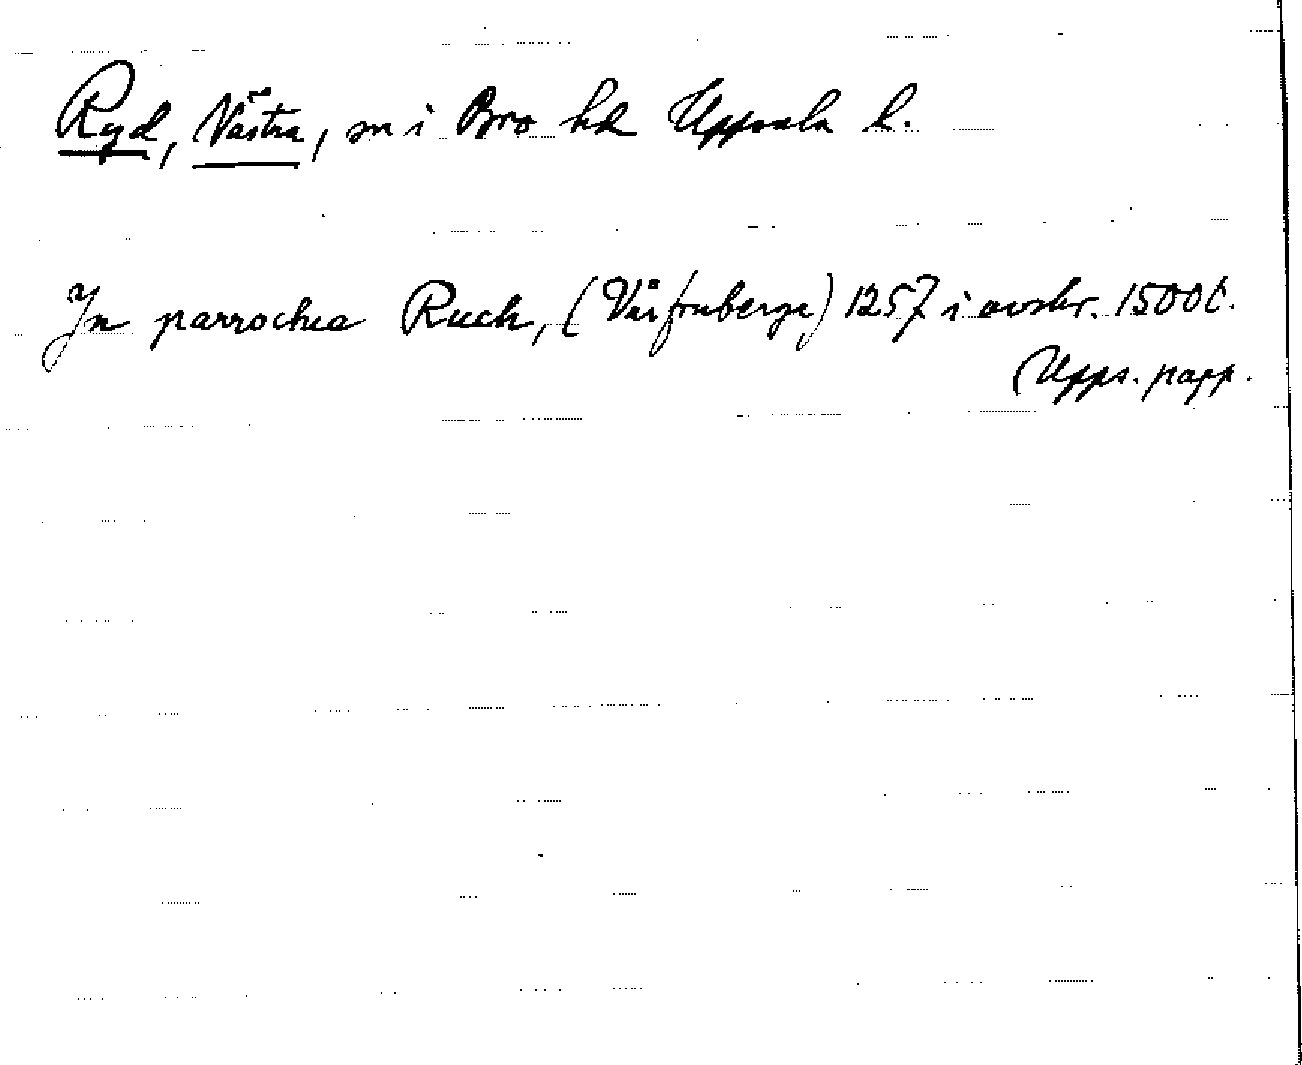 Ryd, Västra, sn i Bro hd Uppsala l.
In parrochia Ruch, (Vårfruberga) 1257 i avskr. 1500t.
Upps. papp.